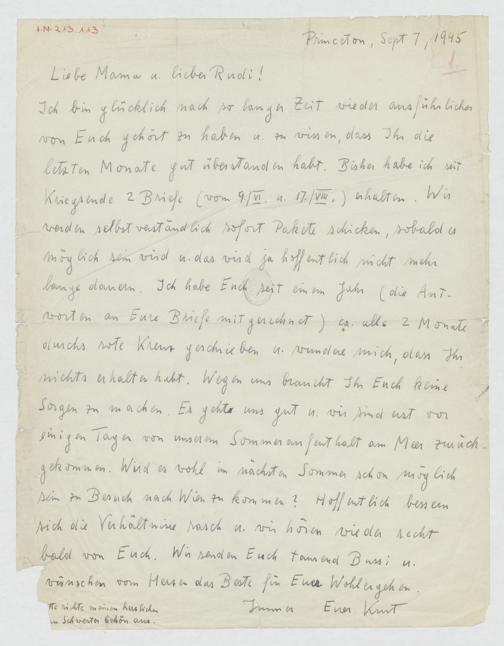 I.N. 213.113
Princeton, Sept 7, 1945
1.
Liebe Mama u. lieber Rudi!
Ich bin glücklich nach so langer Zeit wieder ausführlicher
von Euch gehört zu haben u. zu wissen, dass Ihr die
letzten Monate gut überstanden habt. Bisher habe ich seit
Kriegsende 2 Briefe (vom 9./VI. u. 17./VIII.) erhalten. Wir
werden selbstverständlich sofort Pakete schicken, sobald es
möglich sein wird u. das wird ja hoffentlich nicht mehr
lange dauern. Ich habe Euch seit einem Jahr (die Ant-
worten an Eure Briefe mitgerechnet) ca. alle 2 Monate
durchs rote Kreuz geschrieben u. wundere mich, dass Ihr
nichts erhalten habt. Wegen uns braucht Ihr Euch keine
Sorgen zu machen. Es geht uns gut u. wir sind erst vor
einigen Tagen von unserem Sommeraufenthalt am Meer zurück-
gekommen. Wird es wohl im nächsten Sommer schon möglich
sein zu Besuch nach Wien zu kommen? Hoffentlich bessern
sich die Verhältnisse rasch u. wir hören wieder recht
bald von Euch. Wir senden Euch tausend Bussi u.
wünschen vom Herzen das Beste für Euer Wohlergehen.
Immer Euer Kurt
tte richte meinen herzlichen
Schwester Schön aus.